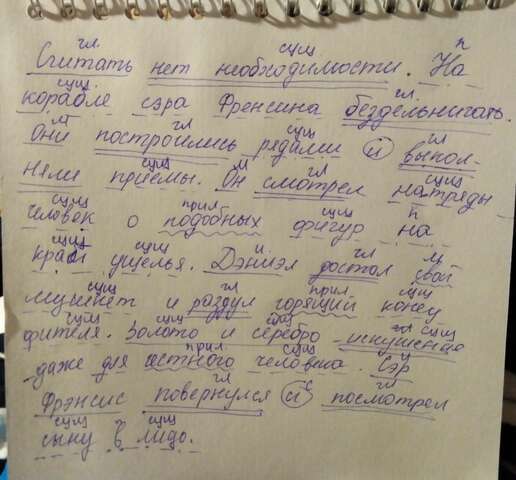 гл сущ п
Считать нет необходимости. На
сущ гл
корабле сэра Френсина бездельничать.
М гл сущ гл
Они построились рядами и выпол-
сущ М гл сущ
няли приемы. Он смотрел на ряды
сущ прил сущ п
человек о подобных фигур на
сущ сущ и гл М
край ущелья. Дэниэл достал свой
сущ гл прил сущ
мушкет и раздул горящий конец
сущ сущ сущ гл сущ
фителя. Золото и серебро искушение
прил сущ
даже для честного человека. Сэр
гл с гл
Фрэнсис повернулся и посмотрел
сущ сущ
сыну в лицо.